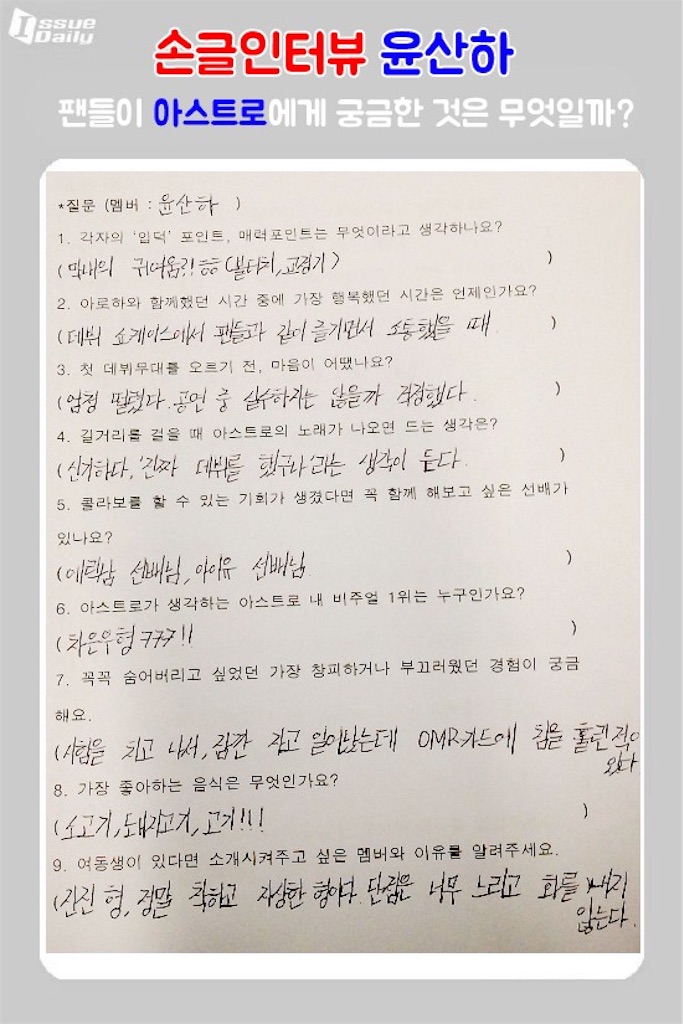 Issue
Daily
손글인터뷰 윤산하
팬들이 아스트로에게 궁금한 것은 무엇일까?
*질문 (멤버 : 윤산하 )
1. 각자의 '입덕' 포인트, 매력포인트는 무엇이라고 생각하나요?
(막내의 귀여움?! ㅎㅎ (볼터치, 교정기) )
2. 아로하와 함께했던 시간 중에 가장 행복했던 시간은 언제인가요?
(데뷔 쇼케이스에서 팬들과 같이 즐기면서 소통했을 때. )
3. 첫 데뷔무대를 오르기 전, 마음이 어땠나요?
(엄청 떨렸다. 공연 중 실수하지는 않을까 걱정했다. )
4. 길거리를 걸을 때 아스트로의 노래가 나오면 드는 생각은?
(신기하다, '진짜 데뷔를 했구나'라는 생각이 든다. )
5. 콜라보를 할 수 있는 기회가 생겼다면 꼭 함께 해보고 싶은 선배가
있나요?
(에릭남 선배님, 아이유 선배님. )
6. 아스트로가 생각하는 아스트로 내 비주얼 1위는 누구인가요?
(차은우형 ㅋㅋㅋ!! )
7. 꼭꼭 숨어버리고 싶었던 가장 창피하거나 부끄러웠던 경험이 궁금
해요.
(시험을 치고 나서, 잠깐 자고 일어났는데 OMR카드에 침을 흘린 적이
있다.
8. 가장 좋아하는 음식은 무엇인가요?
(소고기, 돼지고기, 고기!!! )
9. 여동생이 있다면 소개시켜주고 싶은 멤버와 이유를 알려주세요.
(진진 형, 정말 착하고 자상한 형이다. 단점은 너무 느리고 화를 내지
않는다.